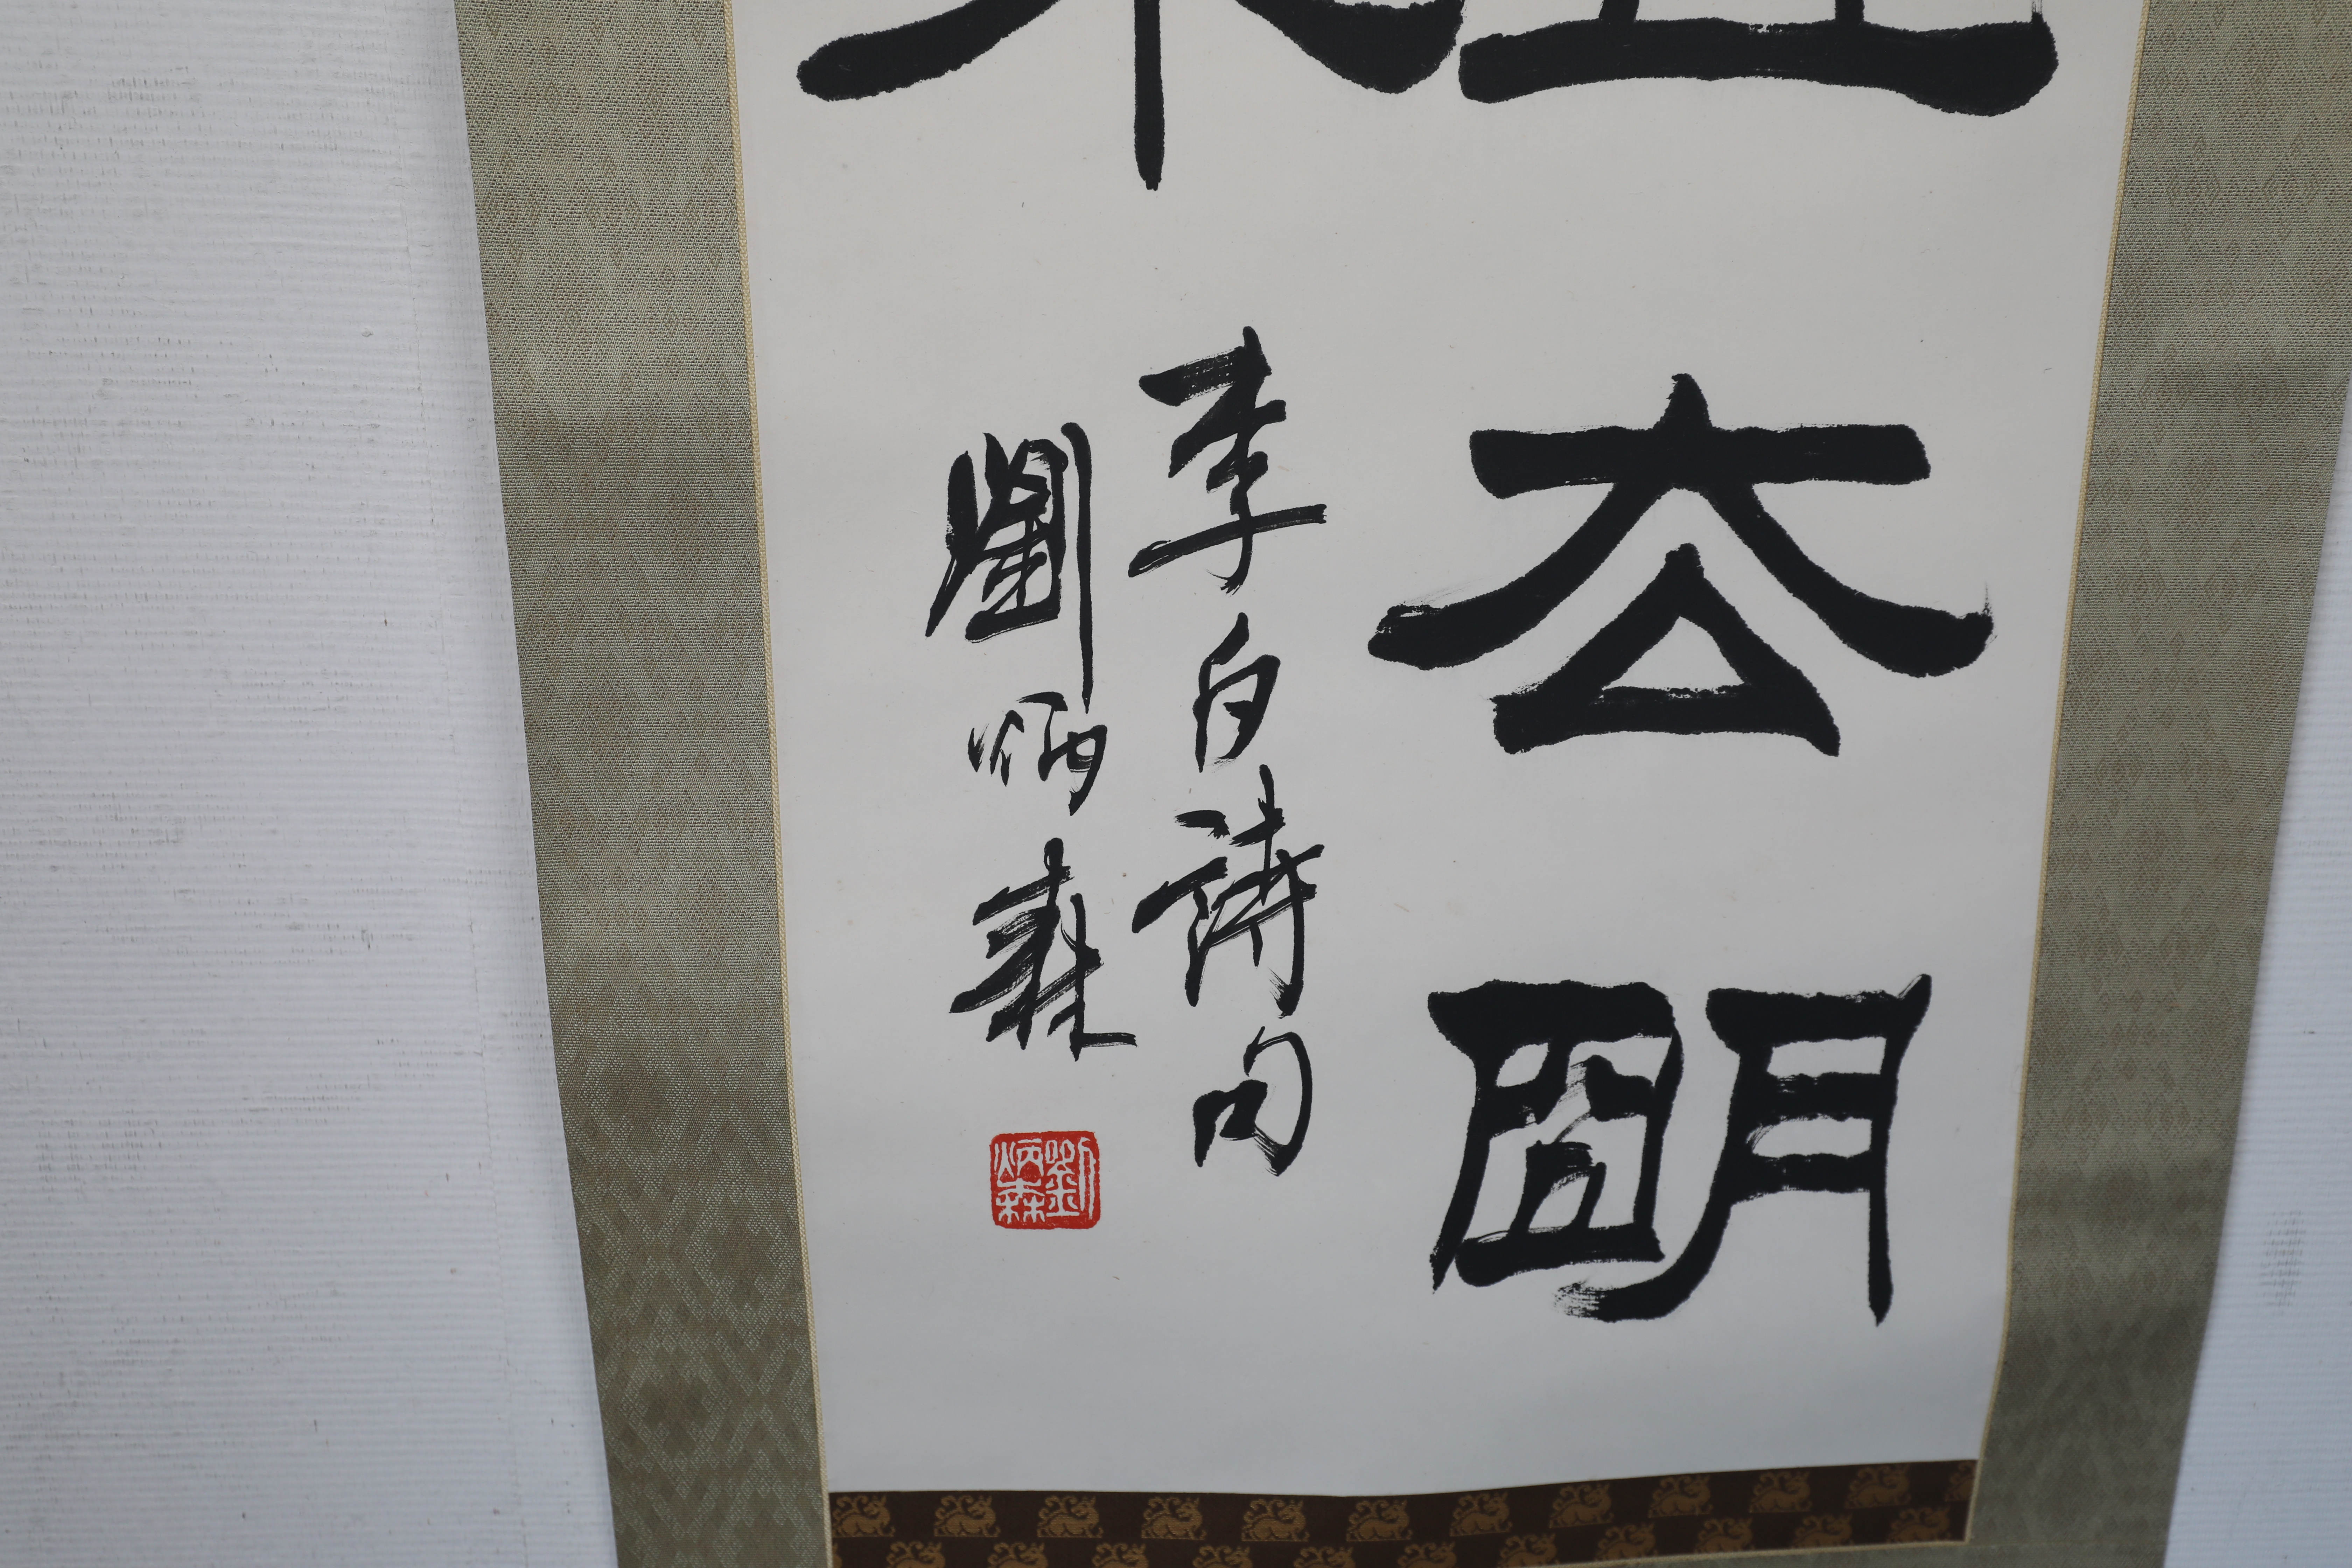 厺朙
李白詩句
劉炳森
劉炳森